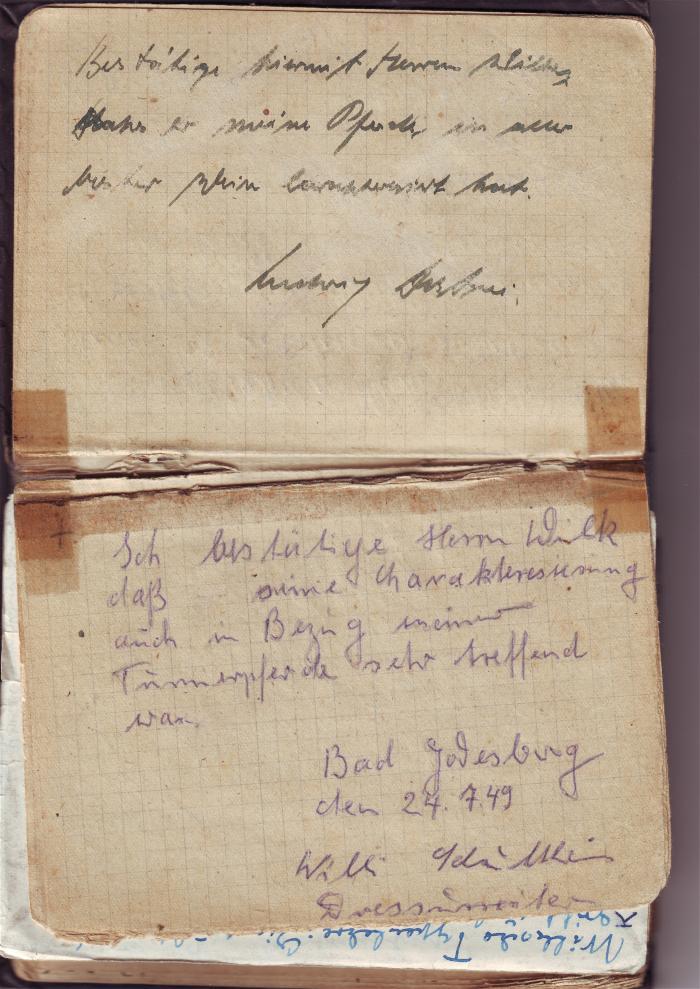 Bestätige hiermit Herrn
er meine Pferde in
bester charakterisiert hat.
Ludwig
Ich bestätige Herrn Wilk
daß seine Charakterisierung
auch in Bezug meiner
Turnierpferde sehr treffend
war.
Bad Godesberg
den 24.7.49
Willi Schultheis
Dressurreiter